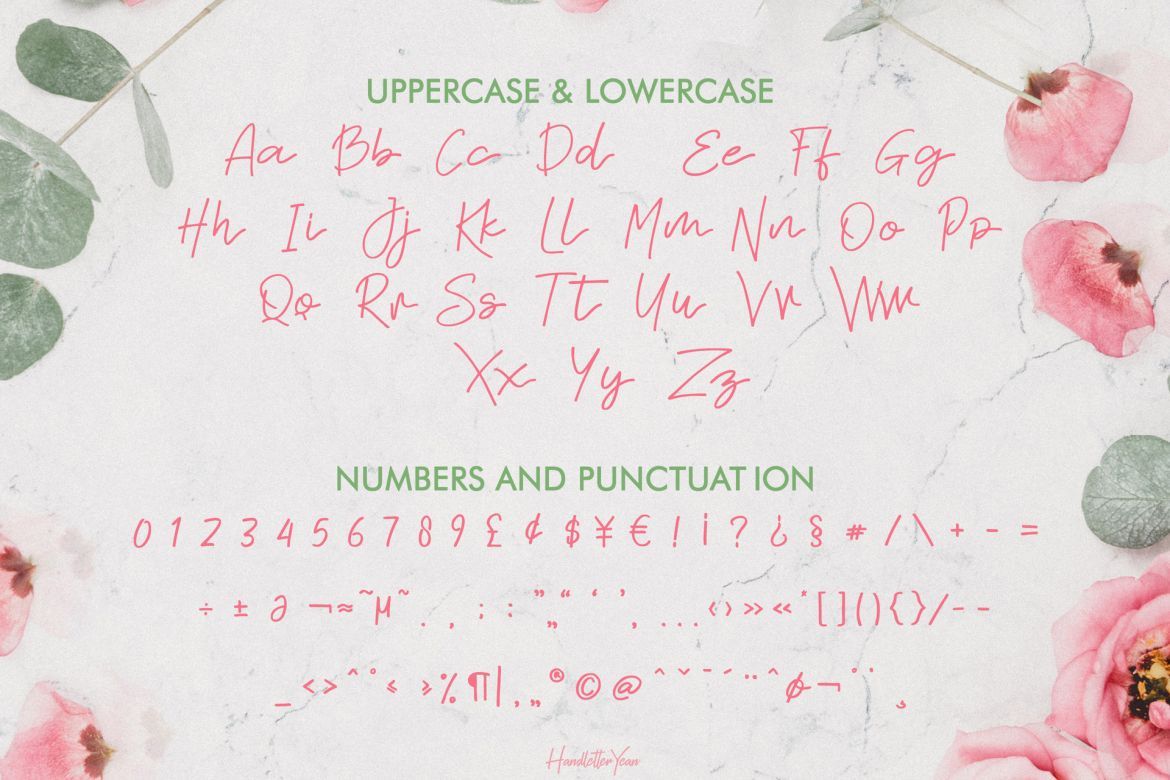 UPPERCASE & LOWERCASE
Aa Bb Cc Dd Ee Ff Gg
Hh Ii Jj Kk Ll Mm Nn Oo Pp
Qq Rr Ss Tt Uu Vv Ww
Xx Yy Zz
NUMBERS AND PUNCTUATION
0 1 2 3 4 5 6 7 8 9 £ ¢ $ ¥ € ! ¡ ? ¿ § # / \ + - =
÷ ± ∂ ¬ ≈ ~ µ ~ . , ; : ” „ “ ‘ ’ , . . . ‹ › » « * [ ] ( ) { } / - -
_ < > ^ ° ≤ ≥ % ¶ | , „ ® © @ ^ ˇ ¯ ´ ¨ ˆ ø ¬ ° ˙ ¸
HandletterYean